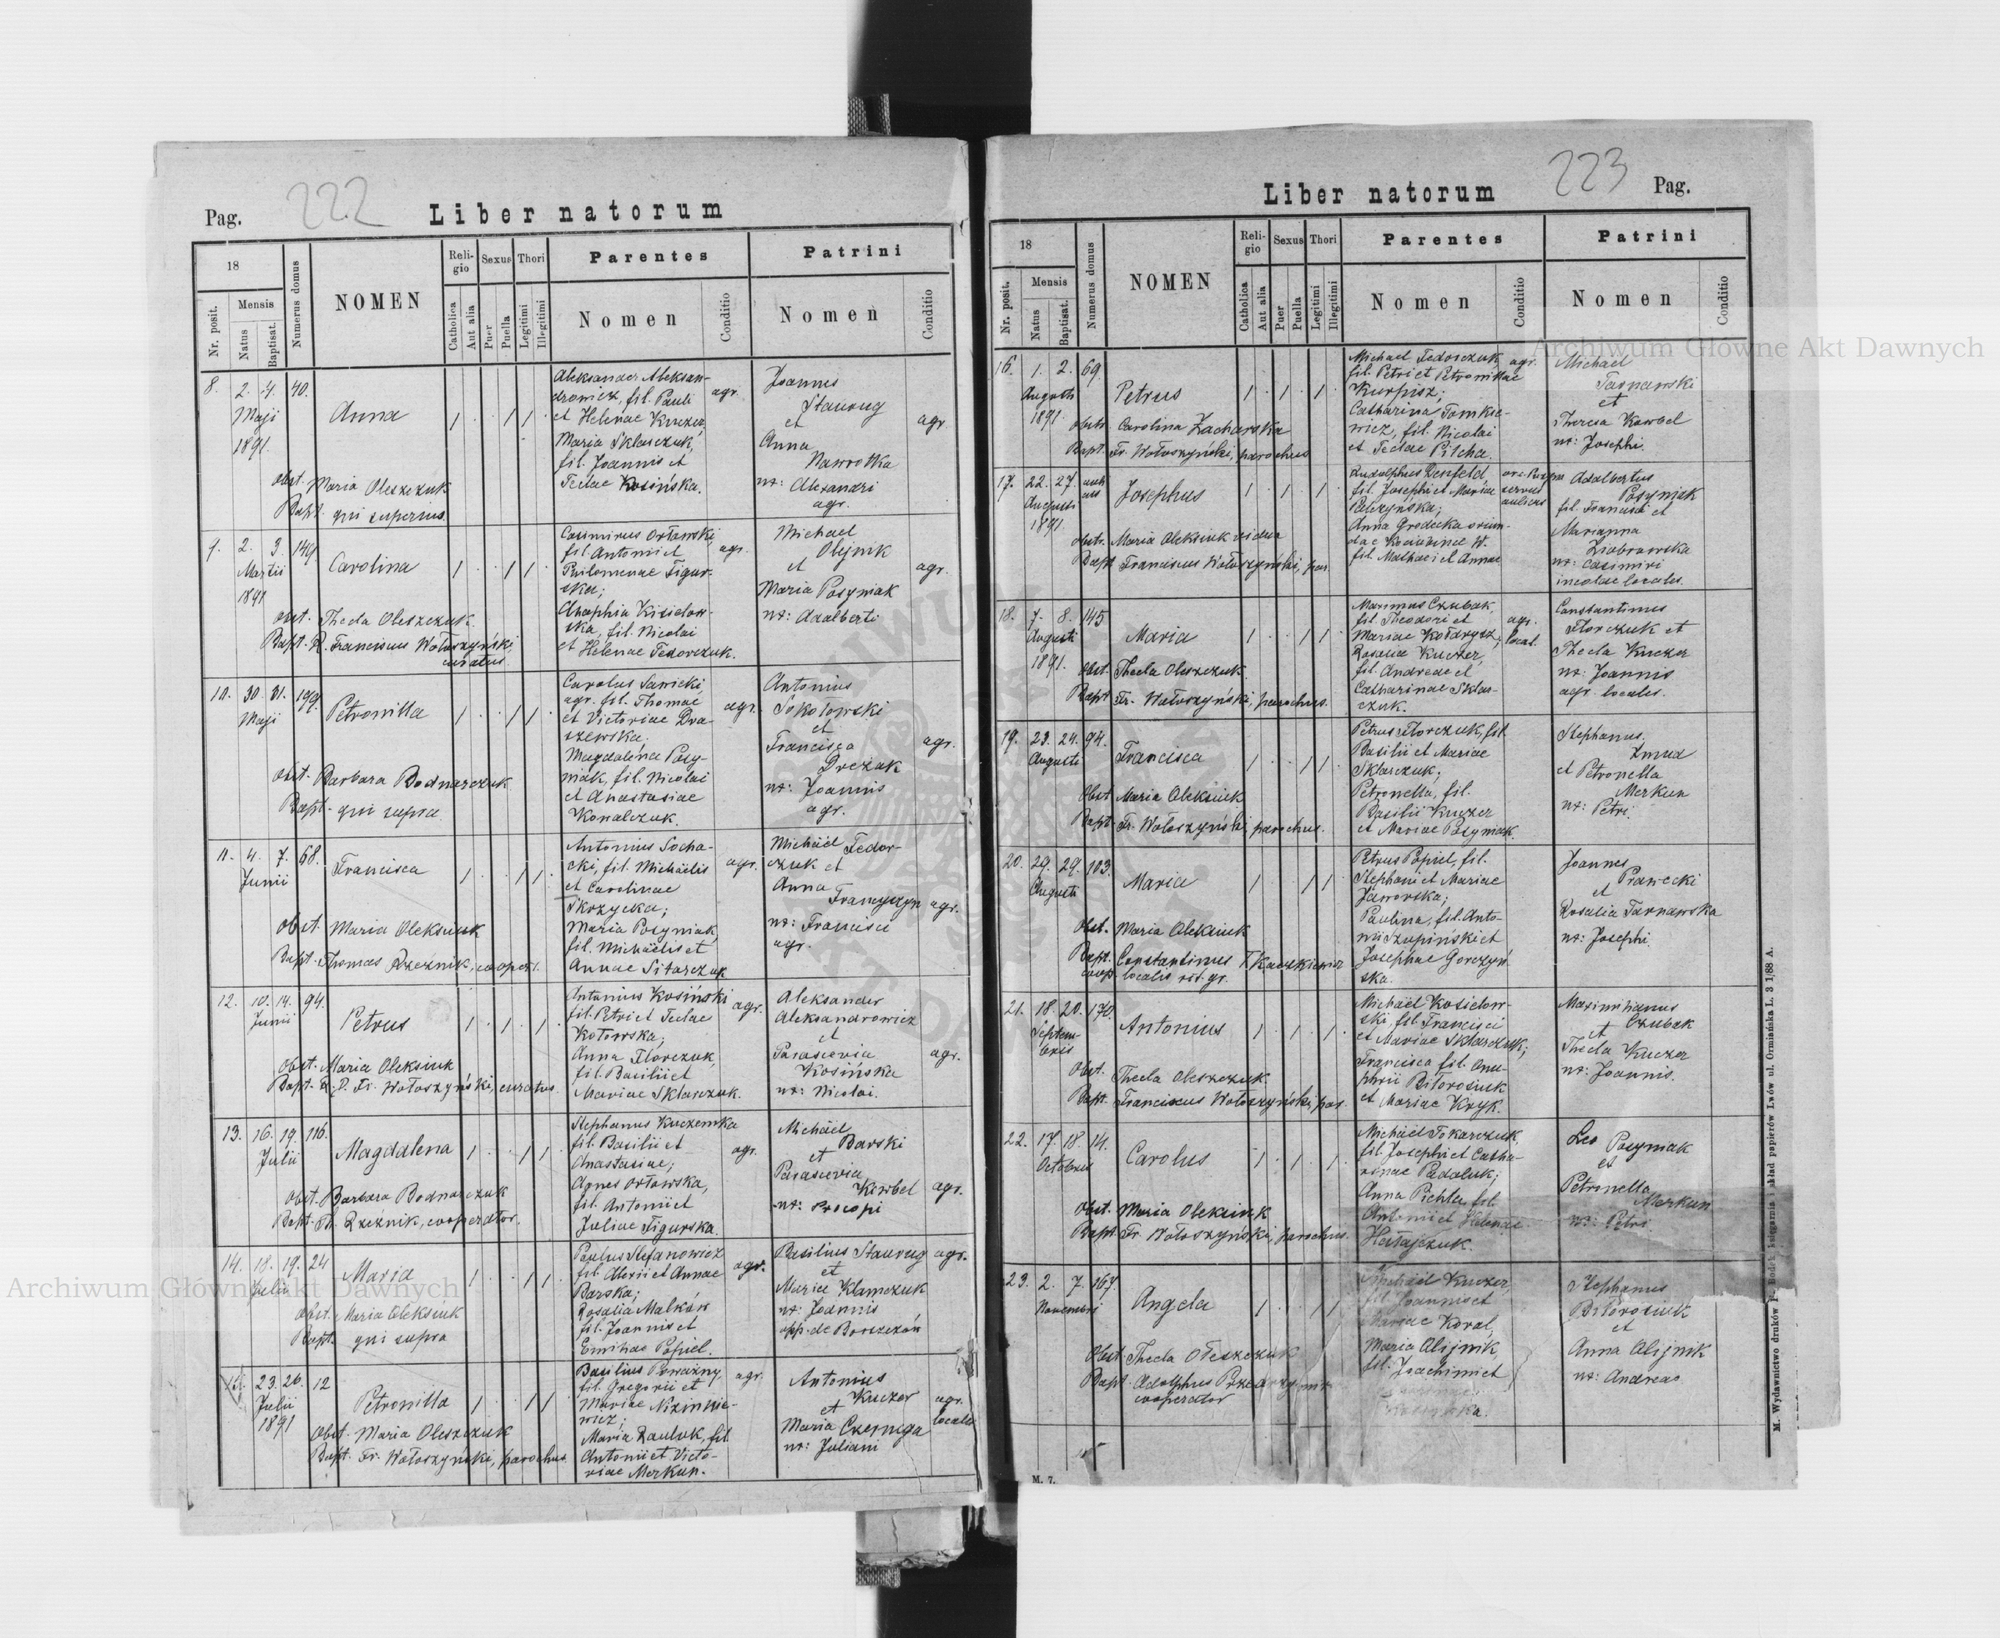 222
Pag.
Liber natorum
18
Nr. posit.
Mensis
Natus
Baptisat.
Numerus domus
NOMEN
Reli-
gio
Catholica
Aut alia
Sexus
Puer
Puella
Thori
Legitimi
Illegitimi
Parentes
Nomen
Conditio
Patrini
Nomen
Conditio
8. 2. 4. 40.
Maji
1891.
Anna
1 . . 1 1 .
Aleksander Aleksan-
drowicz, fil. Pauli
et Helenae Kuczer,
Maria Sklarczuk,
fil. Joannis et
Teclae Kosińska.
agr.
Joannes
Staurug
et
Anna
Nawrotka
ux: Alexandri
agr.
agr
obst. Maria Oleszczuk
Bapt. qui superius.
9. 2. 3. 149
Martii
1891
Carolina
1 . . 1 1 .
Casimirus Orłowski,
fil. Antonii et
Philomenae Figur-
ska;
Anaphia Kisielow-
ska, fil. Nicolai
et Helenae Fedorczuk.
agr.
Michael
Olejnik
et
Maria Posyniak
ux: Adalberti
agr.
obst. Thecla Oleszczuk.
Bapt. R. Franciscus Wołoszyński,
curatus.
10. 30. 31. 199.
Maji
Petronilla
1 . . 1 1 .
Carolus Sawicki,
agr. fil. Thomae
et Victoriae Dra-
szewska.
Magdalena Posy-
niak, fil. Nicolai
et Anastasiae
Konalczuk.
agr.
Antonius
Sokolowski
et
Francisca
Drczuk
ux: Joannis
agr.
agr.
obst. Barbara Bodnarczuk
Bapt. qui supra
11. 4. 7. 68.
Junii
Francisca
1 . . 1 1 .
Antonius Socha-
cki, fil. Michaelis
et Carolinae
Skrzycka;
Maria Posyniak,
fil. Michaelis et
Annae Sitarczuk
agr.
Michael Fedor-
czuk et
Anna
Franczyn
ux: Francisci
agr.
agr.
obst. Maria Oleksiuk
Bapt. Thomas Rzeźnik, cooper.
12. 10. 14. 94.
Junii
Petrus
1 . 1 . 1 .
Antonius Kosiński
fil. Petri et Teclae
Kotowska;
Anna Florczuk,
fil. Basilii et
Mariae Sklarczuk.
agr.
Aleksander
Aleksandrowicz
et
Parascevia
Kosińska
ux: Nicolai.
agr.
Obst. Maria Oleksiuk
Bapt. Fr. Wołoszyński, curatus.
13. 16. 19. 116.
Julii
Magdalena
1 . . 1 1 .
Stephanus Kuczemka
fil. Basilii et
Anastasiae;
Agnes Orłowska,
fil. Antonii et
Juliae Figurska.
agr.
Michael
Barski
et
Parascevia
Kiwbel
ux: Procopi
agr.
obst. Barbara Bodnarczuk
Bapt. Th. Rzeźnik, cooperator.
14. 18. 19. 24
Julii
Maria
1 . . 1 1 .
Paulus Stefanowicz
fil. Alexii et Annae
Barska;
Rosalia Malkón
fil. Joannis et
Emiliae Popiel.
agr.
Basilius Staurug
et
Maria Klamczuk
ux: Joannis
opp. de Borszczón
agr.
Obst. Maria Oleksiuk
Bapt. qui supra
15. 23. 26. 12
Julii
1891
Petronilla
1 . . 1 1 .
Basilius Poważny,
fil. Gregorii et
Mariae Niziukie-
wicz;
Maria Rauluk, fil
Antonii et Victo-
riae Merkun.
agr.
Antonius
Kuczer
et
Maria Czeruga
ux: Juliani
agr.
locales
Obst. Maria Oleszczuk
Bapt. Fr. Wołoszyński, parochus.
223
Liber natorum
Pag.
18
Nr. posit.
Mensis
Natus
Baptisat.
Numerus domus
NOMEN
Reli-
gio
Catholica
Aut alia
Sexus
Puer
Puella
Thori
Legitimi
Illegitimi
Parentes
Nomen
Conditio
Patrini
Nomen
Conditio
16. 1. 2. 69.
Augusti
1891.
Petrus
1 . 1 . 1 .
Michael Fedorczuk,
fil. Petri et Petronillae
Kurpisz;
Catharina Tomkie-
wicz, fil. Nicolai
et Teclae Pilcha.
agr.
Michael
Tarnawski
et
Theresa Kawbel
ux: Josephi.
obstr. Carolina Zacharska
Bapt. Fr. Wołoszyński, parochus
17. 22. 27.
Augusti
1891.
Josephus
1 . 1 . 1 .
Rudolphus Renfeld
fil. Josephi et Mariae
Pelczyńska;
Anna Grodecka oriun-
dae Kociubince W.
fil. Mathaei et Annae
servus
aulicus
Adalbertus
Posyniak
fil. Francisci et
Marianna
Dobrowska
ux: Casimiri
incolae locales.
obstr. Maria Oleksiuk vidua
Bapt. Franciscus Wołoszyński, par.
18. 7. 8. 145
Augusti
1891.
Maria
1 . . 1 1 .
Maximus Czubak,
fil. Theodori et
Mariae Kołarysz;
Rosalia Kuczer,
fil. Andreae et
Catharinae Sklar-
czuk.
agr.
local.
Constantinus
Florczuk et
Thecla Kuczer
ux: Joannis
agr. locales.
Obst. Thecla Oleszczuk.
Bapt. Fr. Wołoszyński, parochus.
19. 23. 24. 94.
Augusti
Francisca
1 . . 1 1 .
Petrus Florczuk, fil.
Basilii et Mariae
Sklarczuk;
Petronella, fil.
Basilii Kuczer
et Mariae Posyniak.
Stephanus
Zmud
et Petronella
Merkun
ux: Petri.
Obst. Maria Oleksiuk
Bapt. Fr. Wołoszyński, parochus.
20. 29. 29. 103.
Augusti
Maria
1 . . 1 1 .
Petrus Popiel, fil.
Stephani et Mariae
Jaworska;
Paulina, fil. Anto-
nii Szupiński et
Josephae Gorczyń-
ska.
Joannes
et Prawecki
Rosalia Tarnawska
ux: Josephi.
Obst. Maria Oleksiuk
Bapt. Constantinus Tkaczkiewicz
coop. localis rit. gr.
21. 18. 20. 170.
Septem-
bris
Antonius
1 . 1 . 1 .
Michael Kosielow-
ski, fil. Francisci
et Mariae Sklarczuk;
Francisca fil. Onu-
phrii Biłorosiuk
et Mariae Kryk.
Maximilianus
et Czubak
Thecla Kuczer
ux: Joannis.
Obst. Thecla Oleszczuk.
Bapt. Franciscus Wołoszyński, par.
22. 17. 18. 14.
Octobris
Carolus
1 . 1 . 1 .
Michael Tokarczuk,
fil. Josephi et Catha-
rinae Padoluk;
Anna Pichla, fil.
Antonii et Helenae
Hałajczuk.
Leo Posyniak
et
Petronella
Merkun
ux: Petri.
Obst. Maria Oleksiuk
Bapt. Fr. Wołoszyński, parochus.
23. 2. 7. 167.
Novembri
Angela
1 . . 1 1 .
Michael Kuczer,
fil. Joannis et
Mariae Koval,
Maria Olijnik
fil. Joachimi et
Stephanus
Biłorosiuk
et
Anna Olijnik
ux: Andreae
Obst. Thecla Oleszczuk
Bapt. Adolphus
cooperator
M. 7.
M. Wydawnictwo druków księgarnia i skład papierów Lwów ul. Ormiańska L. 3 1/88 A.
Archiwum Główne Akt Dawnych
Archiwum Główne Akt Dawnych